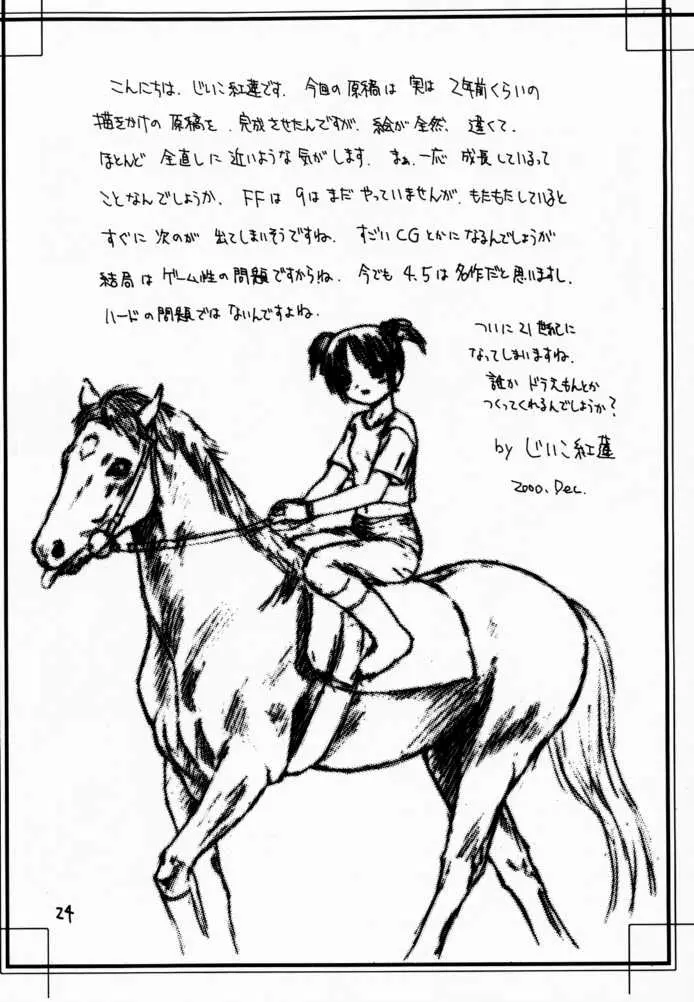 こんにちは、じいこ紅蓮です。今回の原稿は実は2年前くらいの
描きかけの原稿を、完成させたんですが、絵が全然、違くて、
ほとんど全直しに近いような気がします。まぁ、一応成長しているって
ことなんでしょうか。FFは9はまだやっていませんが、もたもたしていると
すぐに次のが出てしまいそうですね。すごいCGとかになるんでしょうが
結局はゲーム性の問題ですからね。今でも4、5は名作だと思いますし、
ハードの問題ではないんですよね。
ついに21世紀に
なってしまいますね。
誰かドラえもんとか
つくってくれるんでしょうか?
by じいこ紅蓮
2000. Dec.
24